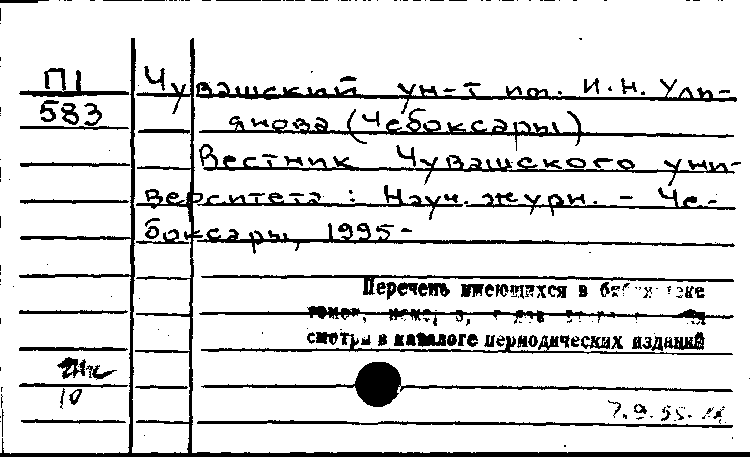 П1
583
Чувашский ун-т им. И.Н. Уль-
янова (Чебоксары)
Вестник Чувашского уни-
верситета : Науч. журн. - Че-
боксары, 1995-
Перечень имеющихся в библиотеке
томов, номеров,
смотри в каталоге периодических изданий
10